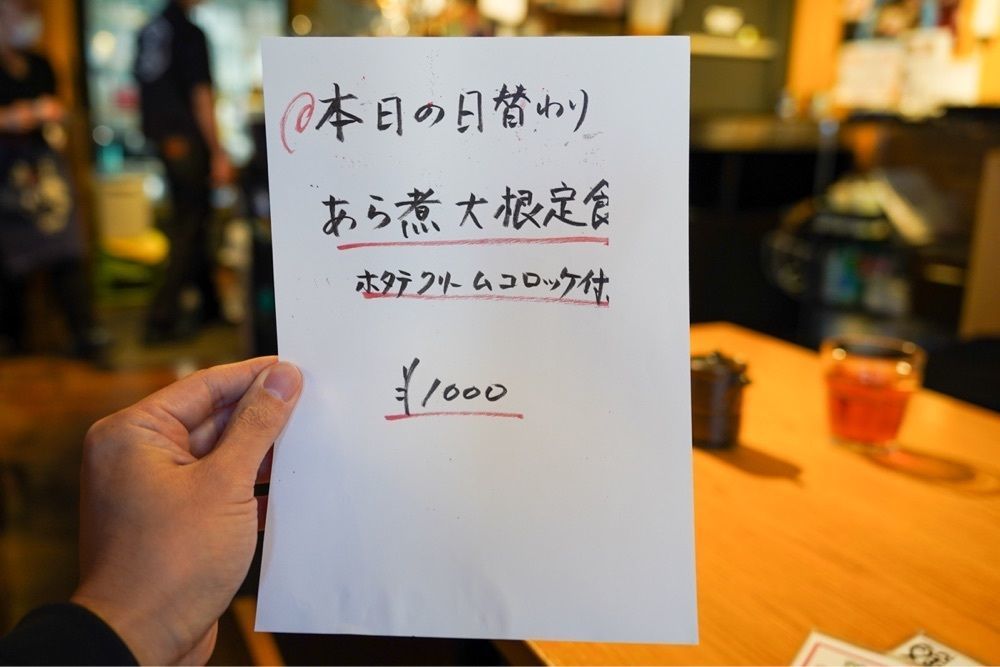 本日の日替わり
あら煮大根定食
ホタテクリームコロッケ付
¥1000